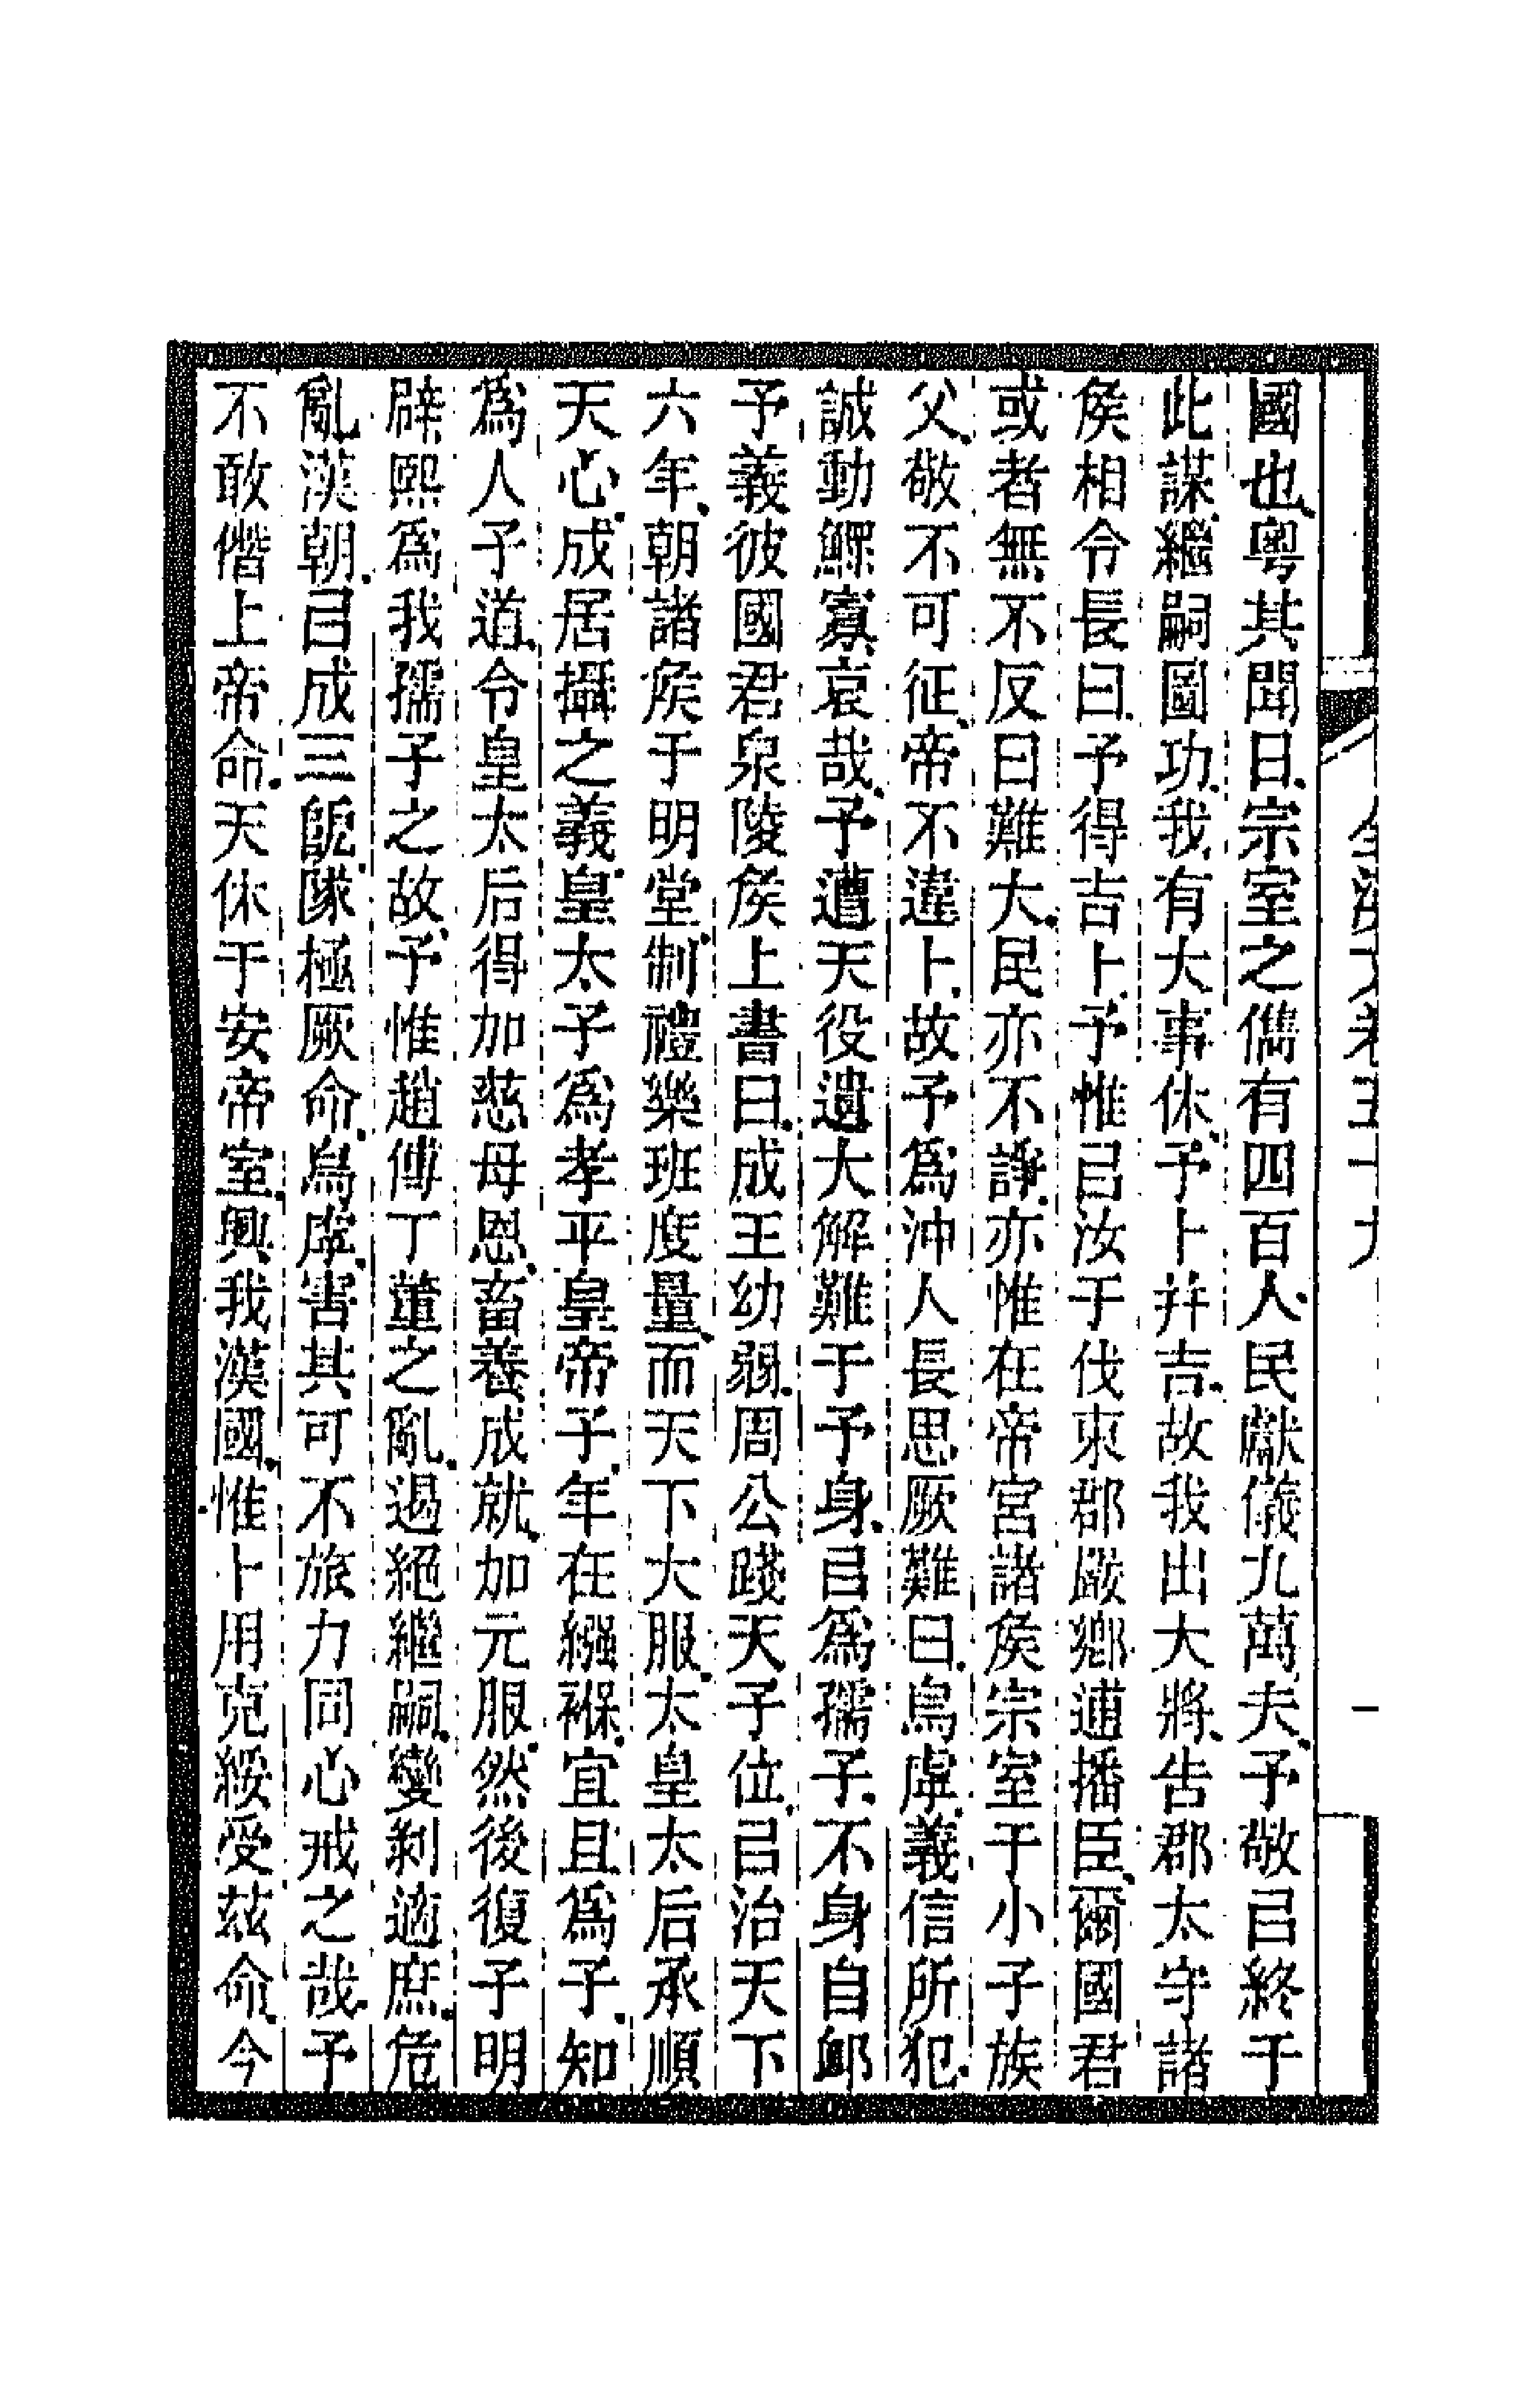 國也粵其聞日宗室之儁有四百人民獻儀九萬夫予敬㠯終于
此謀繼嗣圖功我有大事休予卜并吉故我出大將告郡太守諸
矦相令長曰予得吉卜予惟㠯汝于伐東郡嚴鄉逋播臣爾國君
或者無不反曰難大民亦不諍亦惟在帝宮諸矦宗室于小子族
父敬不可征帝不違卜故予爲沖人長思厥難曰烏虖義信所犯
誠動鰥寡哀哉予遭天役遺大解難于予身㠯爲孺子不身自卹
予義彼國君泉陵矦上書曰成王幼弱周公踐天子位㠯治天下
六年朝諸矦于明堂制禮樂班度量而天下大服太皇太后承順
天心成居攝之義皇太子爲孝平皇帝子年在繦褓宜且爲子知
爲人子道令皇太后得加慈母恩畜養成就加元服然後復子明
辟熙爲我孺子之故予惟趙傅丁董之亂遏絕繼嗣變剝適庶危
亂漢朝㠯成三𨸝隊極厥命烏虖害其可不旅力同心戒之哉予
不敢僭上帝命天休于安帝室興我漢國惟卜用克綏受茲命今
全漢文卷五十九